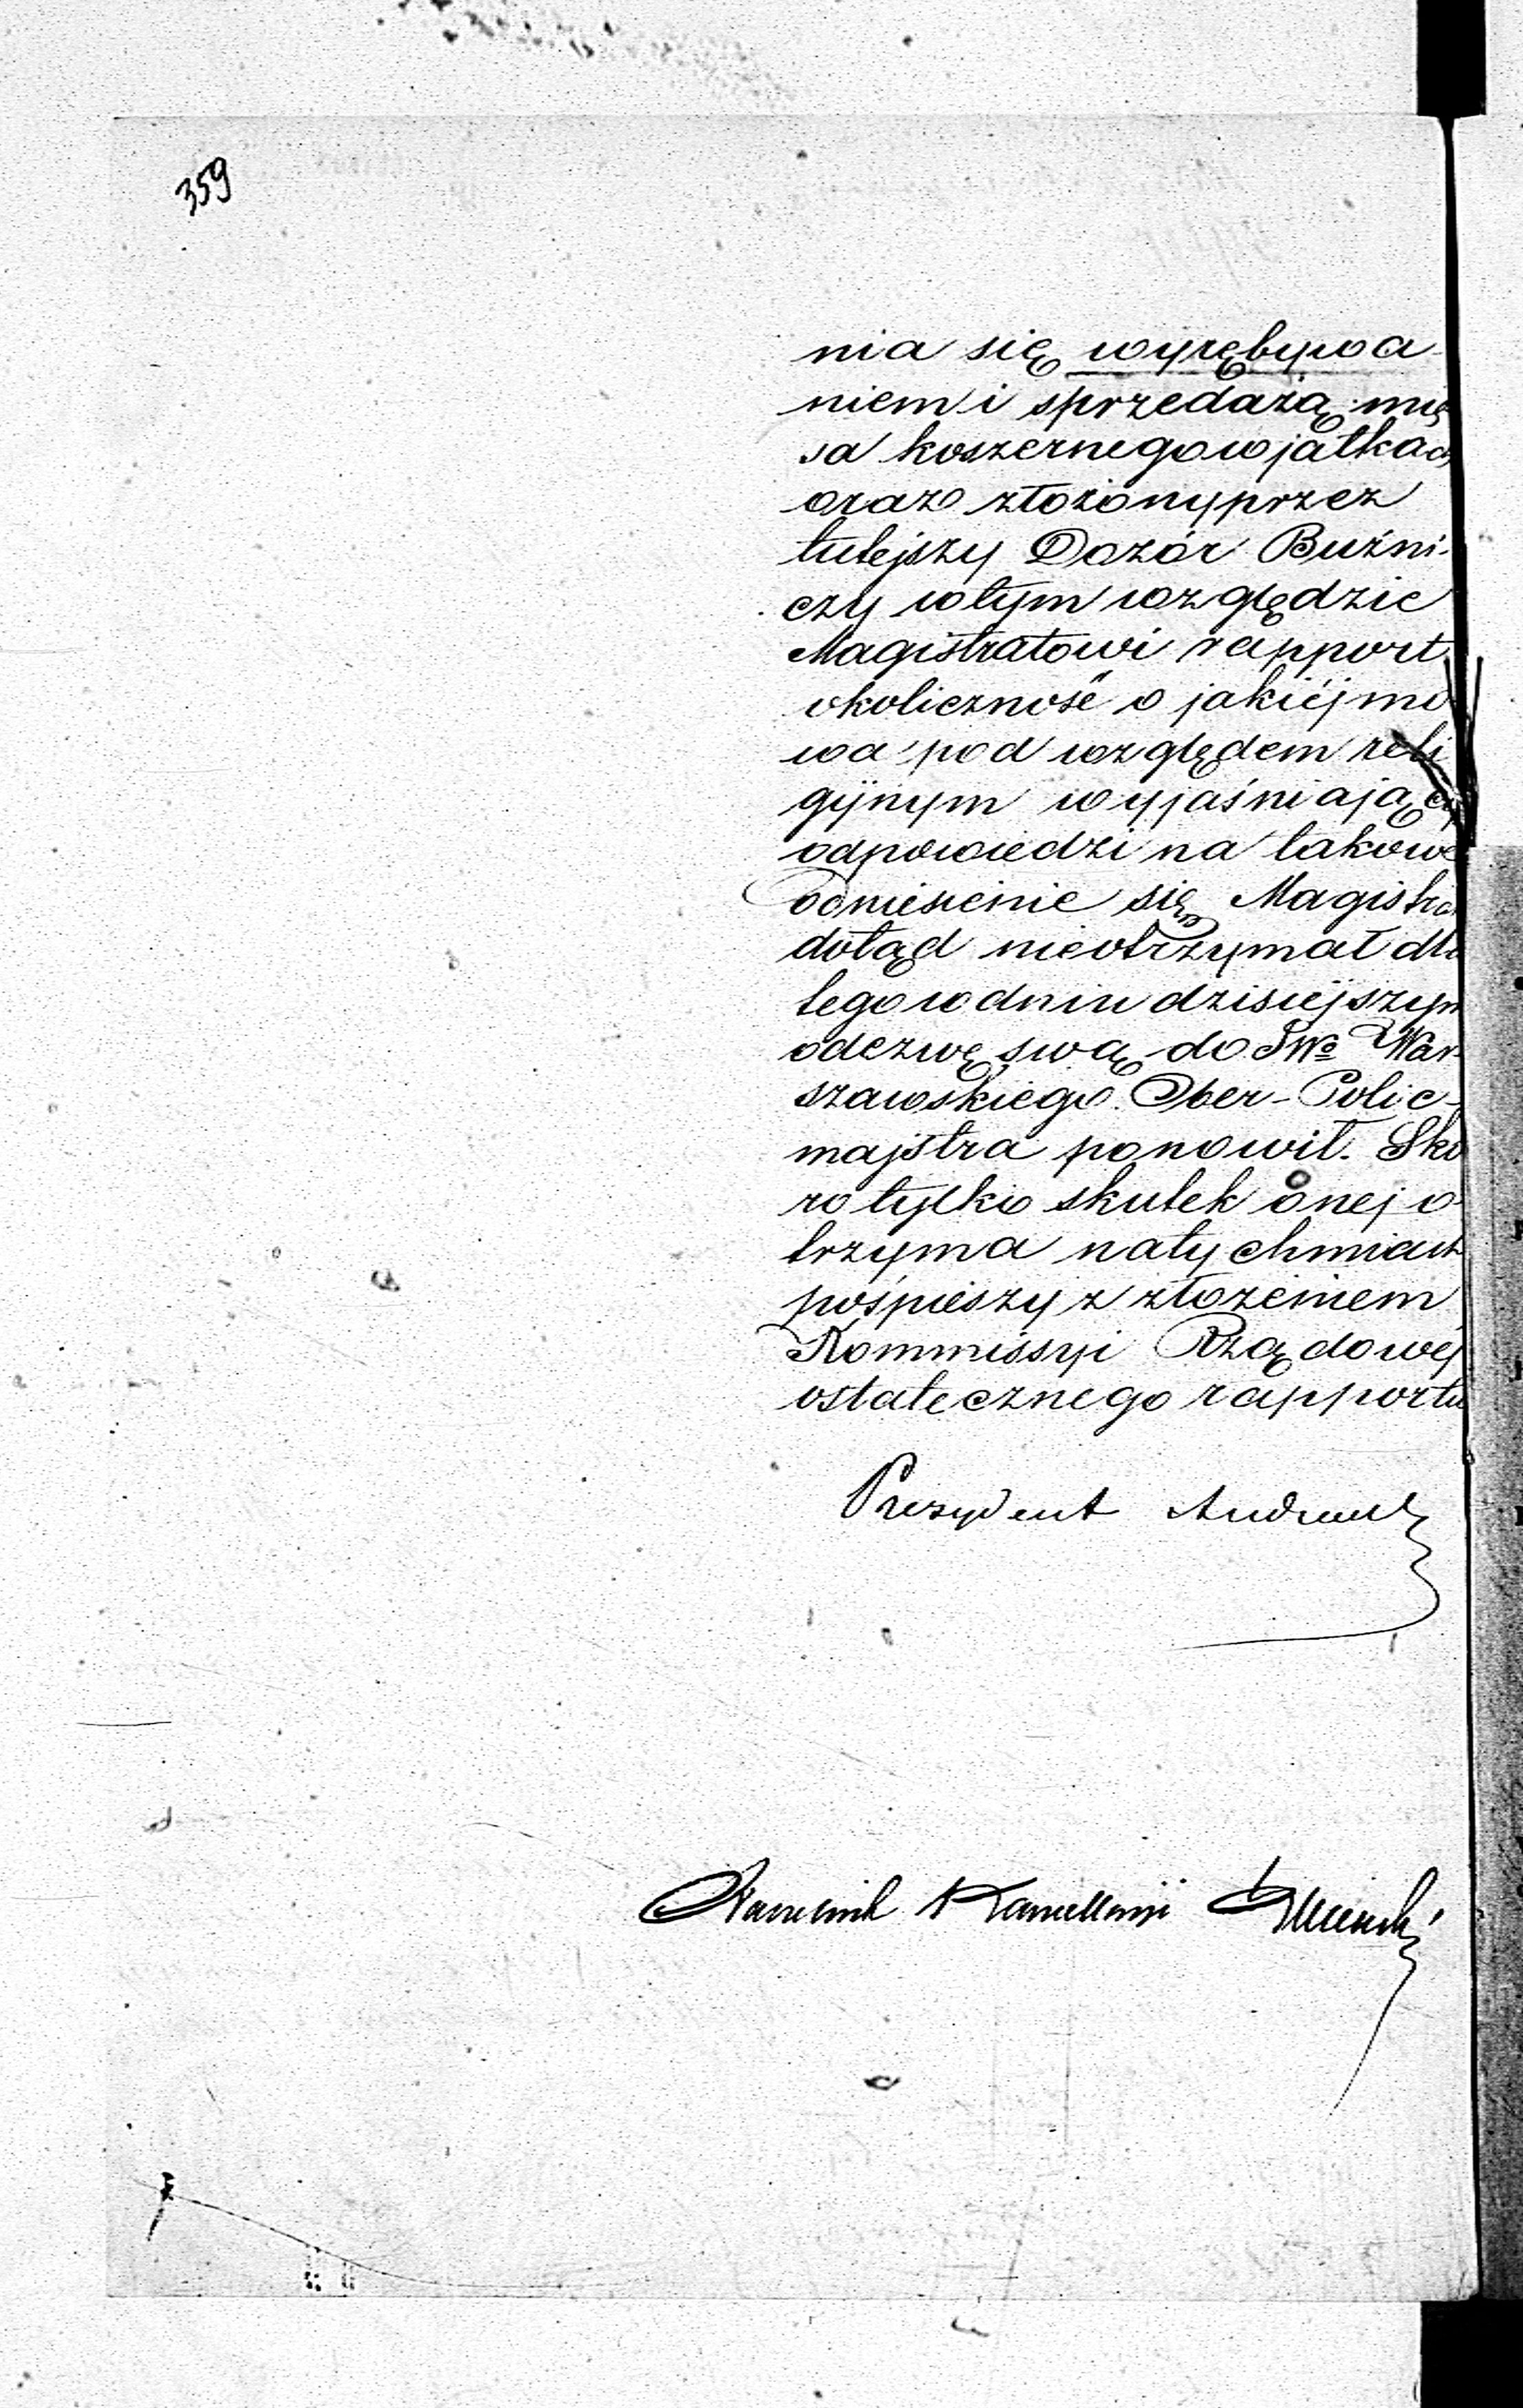 359
nia się wyrębywa-
niem i sprzedażą mię
sa koszernego w jatkach
oraz złożony przez
tutejszy Dozór Buźni-
czy w tym względzie
Magistratowi rapport
okoliczność o jakiéj mo
wa pod względem reli
gijnym wyjaśniający
odpowiedzi na takowe
odniesienie się Magistrat
dotąd nieotrzymał dla
tego w dniu dzisiejszym
odezwę swą do JWo War-
szawskiego Ober-Polic-
majstra ponowił. Sko
ro tylko skutek onej o-
trzyma natychmiast
pośpieszy z złożeniem
Kommissyi Rządowéj
ostatecznego rapportu
Prezydent
Naczelnik Kancellaryi